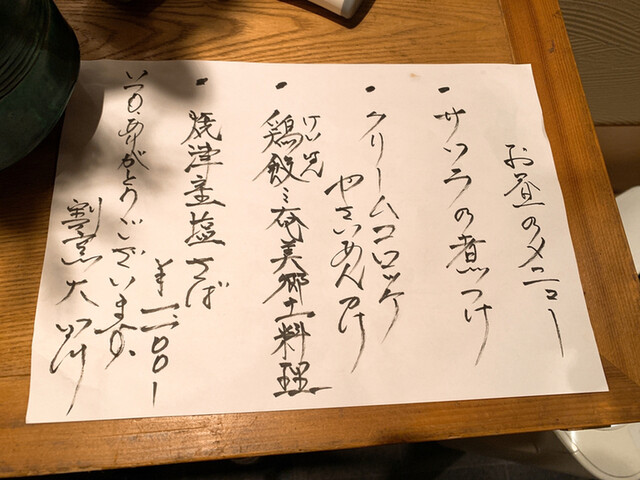 お昼のメニュー
・サワラの煮つけ
・クリームコロッケ
やさいあんかけ
・鶏飯ミ奄美郷土料理
けいはん
・焼津産塩さば
¥一二〇〇ー
いつもありがとうございます。
割烹大